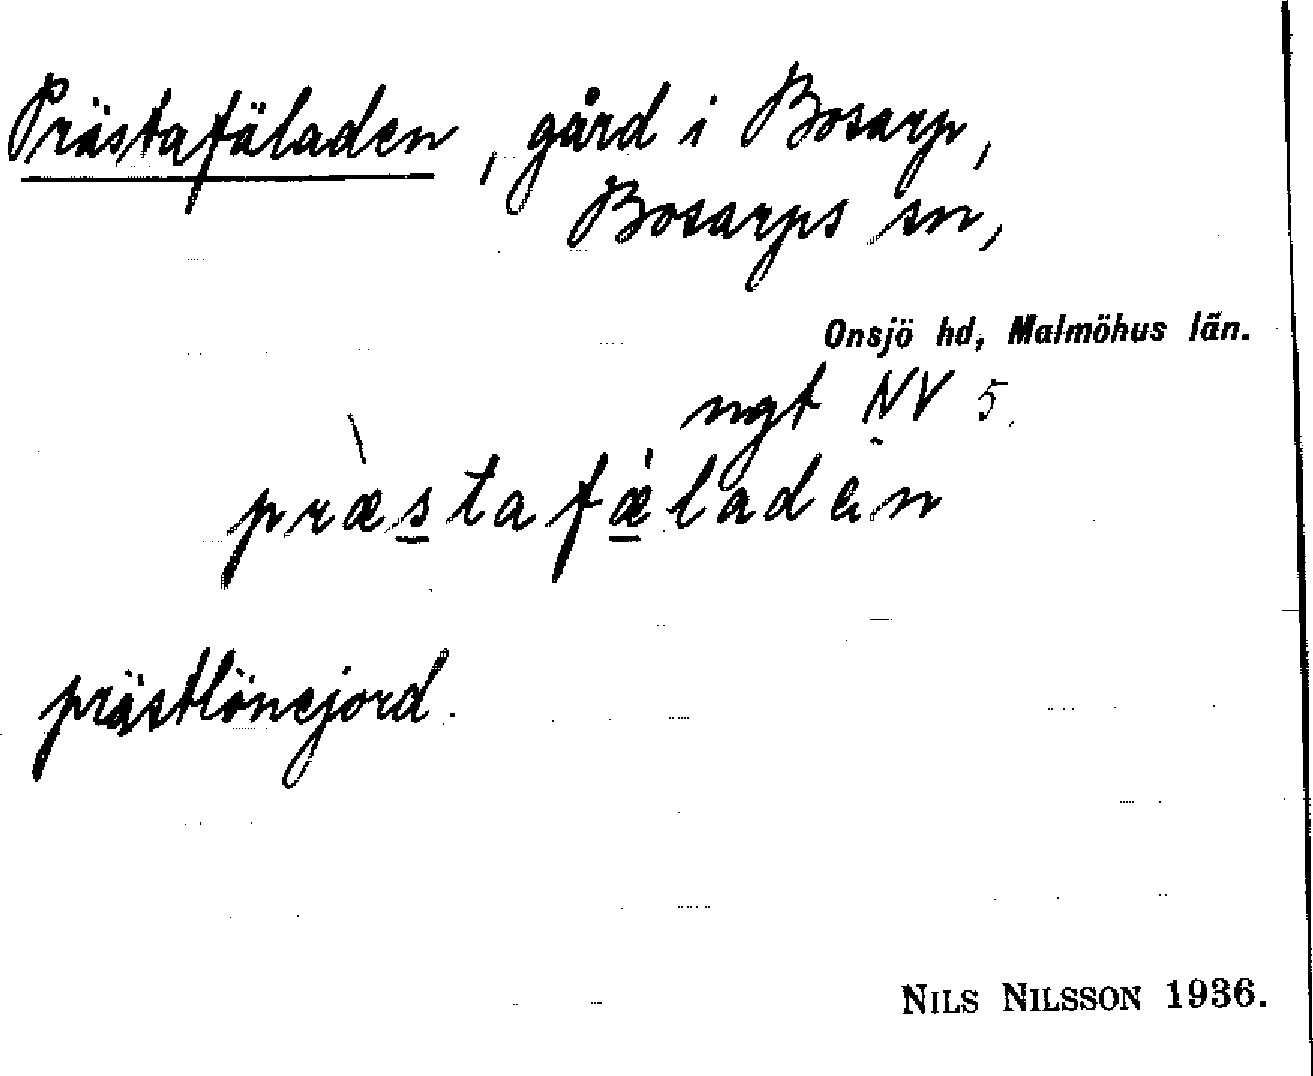 Prästafäladen, gård i Bosarp,
Bosarps sn,
Onsjö hd, Malmöhus län.
ngt NV 5.
præstafæladen
prästlönejord.
NILS NILSSON 1936.